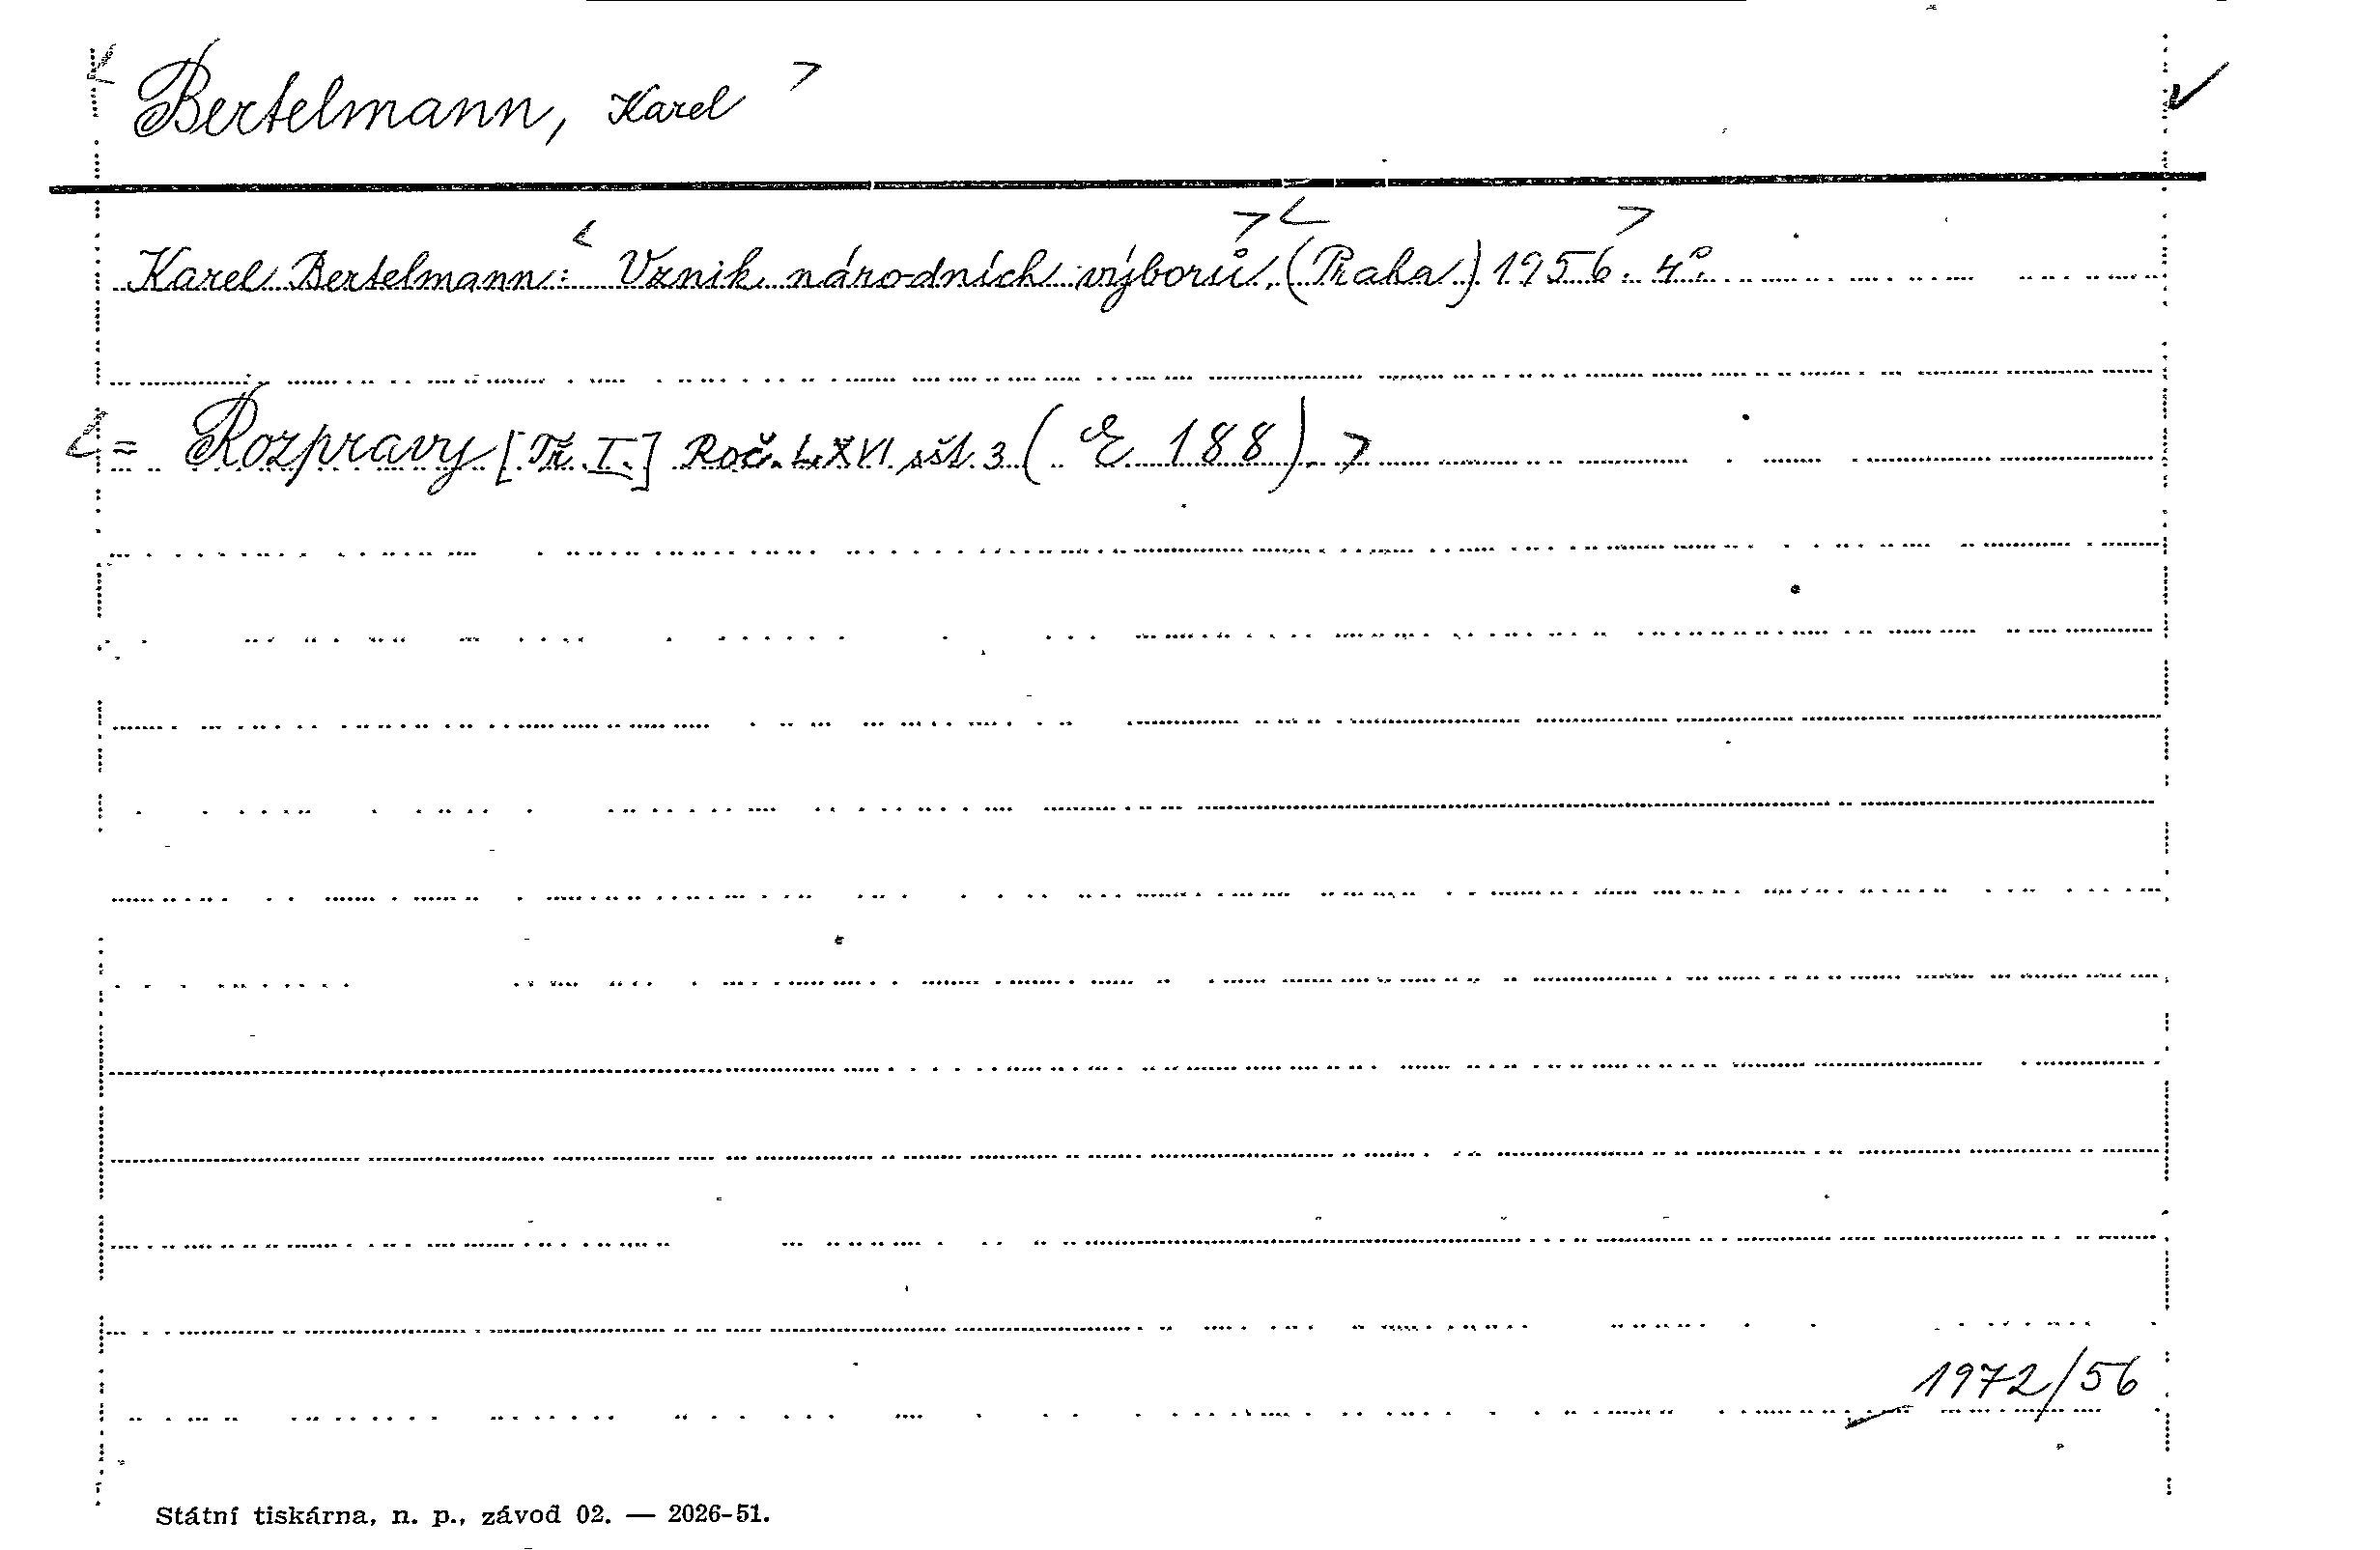 Bertelmann, Karel
Karel Bertelmann: Vznik národních výborů, (Praha) 1956. 4°.
= Rozpravy [Tř. I.] Roč. LXVI, seš. 3 (E 188).
1972/56
Státní tiskárna, n. p., závod 02. — 2026-51.